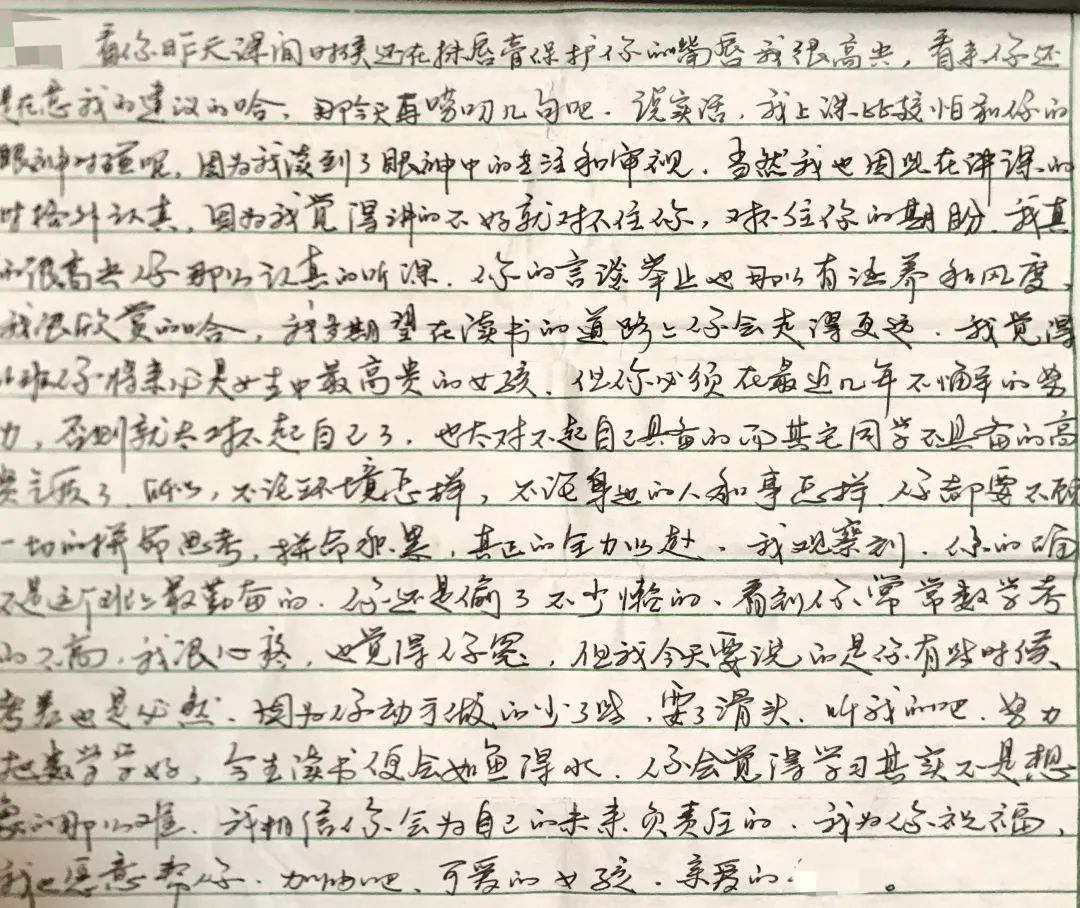 看你昨天课间时候还在抹唇膏保护你的嘴唇我很高兴，看来你还
是在意我的建议的哈，那今天再唠叨几句吧．说实话，我上课比较怕和你的
眼神对碰呢，因为我读到了眼神中的专注和审视．当然我也因此在讲课的
时格外认真，因为我觉得讲的不好就对不住你，对不住你的期盼．我真
的很高兴你那么认真的听课．你的言谈举止也那么有涵养和风度，
我很欣赏的哈，我多期望在读书的道路上你会走得更远．我觉得
班你将来必是女生中最高贵的女孩．但你必须在最近几年不懈的努
力，否则就太对不起自己了．也太对不起自己具备的而其它同学不具备的高
贵之质了．所以，不论环境怎样，不论身边的人和事怎样．你都要不顾
一切的拼命思考，拼命积累，真正的全力以赴．我观察到．你的确
不是这个班上最勤奋的．你还是偷了不少懒的．看到你常常数学考
的不高，我很心疼，也觉得你冤，但我今天要说的是你有些时候
考差也是必然．因为你动手做的少了些，耍了滑头．听我的吧．努力
把数学学好，今生读书便会如鱼得水．你会觉得学习其实不是想
象的那么难．我相信你会为自己的未来负责任的．我为你祝福，
我也愿意帮你．加油吧．可爱的女孩．亲爱的 。